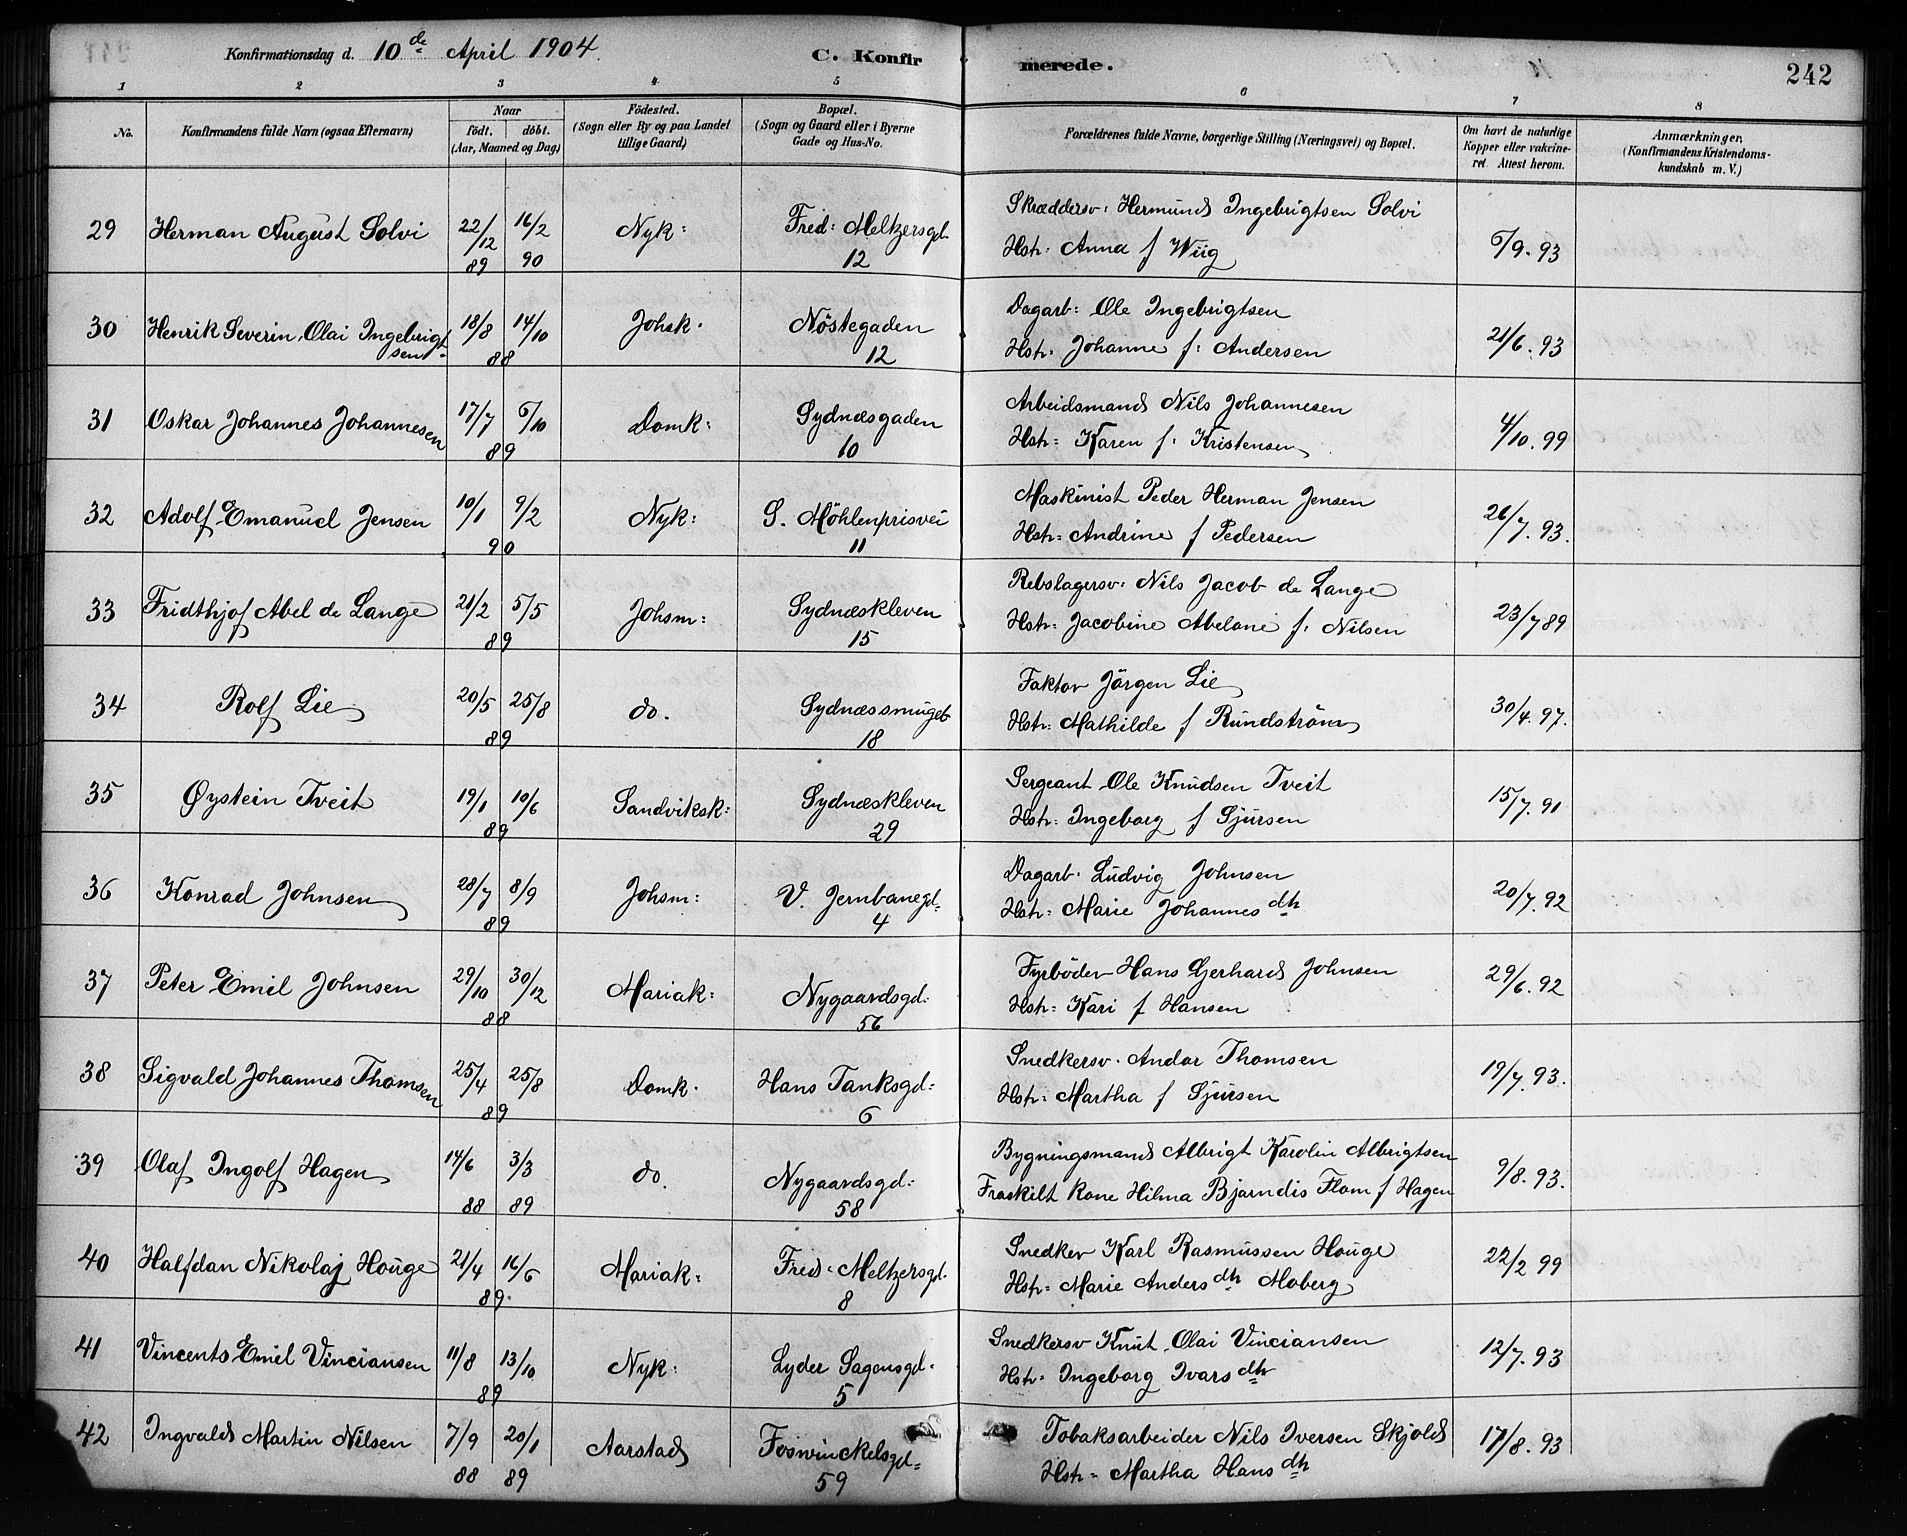 Konfirmationsdag d. 10de April 1904. C. Konfirmerede. 242
1 2 3 4 5 6 7 8
No. Konfirmandens fulde Navn (ogsaa Efternavn) Naar født. døbt. (Aar, Maaned og Dag) Fødested. (Sogn eller By og paa Landet tillige Gaard) Bopæl. (Sogn og Gaard eller i Byerne Gade og Hus-No. Forældrenes fulde Navne, borgerlige Stilling (Næringsvei) og Bopæl. Om havt de naturlige Kopper eller vakcineret Attest herom. Anmærkninger, (Konfirmandens Kristendomskundskab m. V.)
29 Herman August Solvi 22/12 89 16/2 90 Nyk: Fred: Meltzersgd. 12 Skræddersv: Hermund Ingebrigtsen Solvi
Hstr: Anna f Wiig 6/9. 93
30 Henrik Severin Olai Ingebrigtsen 18/8 14/10 88 Johsk. Nöstegaden 12 Dagarb: Ole Ingebrigtsen
Hstr: Johanne f: Andersen 21/6. 93
31 Oskar Johannes Johannesen 17/7 6/10 89 Domk: Sydnæsgaden 10 Arbeidsmand Nils Johannesen
Hstr: Karen f: Kristensen 4/10. 99
32 Adolf Emanuel Jensen 10/1 9/2 90 Nyk: S. Möhlenprisvei 11 Maskinist Peder Herman Jensen
Hstr: Andrine f Pedersen 26/7. 93.
33 Fridthjof Abel de Lange 21/2 5/5 89 Johsm: Sydnæskleven 15 Rebslagersv: Nils Jacob de Lange
Hstr: Jacobine Abelane f: Nilsen 23/7 89
34 Rolf Lie 20/5 25/8 89 do. Sydnæssmuget 18 Faktor Jörgen Lie
Hstr: Mathilde f Rundström 30/4. 97.
35 Øystein Tveit 19/1 10/6 89 Sandviksk: Sydnæskleven 29 Sergeant Ole Knudsen Tveit
Hstr: Ingeborg f Sjursen 15/7. 91
36 Konrad Johnsen 28/7 8/9 89 Johsm: V. Jernbanegd. 4 Dagarb. Ludvig Johnsen
Hstr: Marie Johannesdtr 20/7. 92
37 Peter Emil Johnsen 29/10 30/12 88 Mariak: Nygaardsgd. 56 Fyrböder Hans Gerhard Johnsen
Hstr: Kari f Hansen 29/6. 92
38 Sigvald Johannes Thomsen 25/4 25/8 89 Domk. Hans Tanksgd: 6 Snedkersv. Andar Thomsen
Hstr: Martha f Sjursen 19/7. 93.
39 Olaf Ingolf Hagen 14/6 88 3/3 89 do. Nygaardsgd: 58 Bygningsmand Albrigt Karolin Albrigtsen
Fraskilt kone Hilma Bjarndis Flom f Hagen 9/8. 93.
40 Halfdan Nikolaj Houge 21/4 16/6 89. Mariak: Fred. Meltzersgd. 8 Snedker Karl Rasmussen Houge
Hstr: Marie Andersdtr Moberg 22/2 99
41 Vincents Emil Vinciansen 11/8 13/10 89 Nyk: Lyder Sagensgd. 5 Snedkersv Knut Olai Vinciansen
Hstr. Ingeborg Ivarsdtr 12/7. 93
42 Ingvald Martin Nilsen 7/9 88 20/1 89 Aarstad Foswinckelsgd: 59 Tobaksarbeider Nils Iversen Skjold
Hstr. Martha Hansdtr 17/8. 93